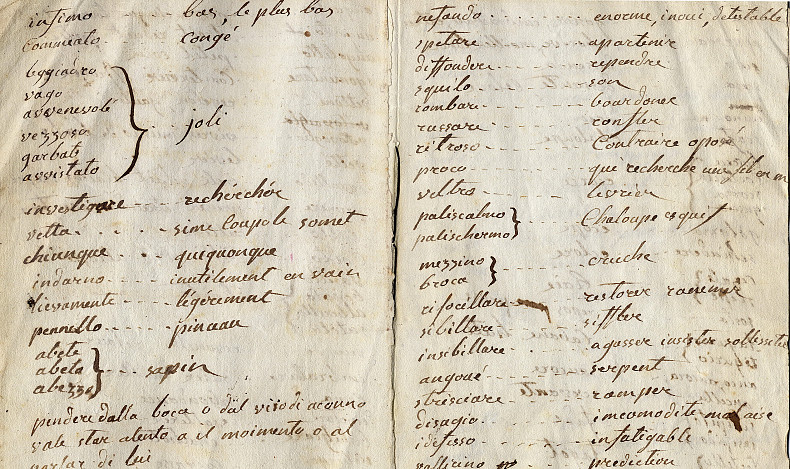 infimo ---- bas, le plus bas
commiato ---- congé
leggiadro
vago
avvenevolé
vezzoso
garbato
avvistato
joli
investigare ---- rechérchér
vetta . . . . sime Coupole somet
chiunque ---- quiquonque
indarno ---- inutilement en vain
lievamente --- légérement
pennello ---- pinceau
abete
abeto
abezzo
sapin
pendere dalla boca o dal viso di alcuno
vale star atento a il moimento o al
parlar di lui
nefando ---- enorme, inoui, detestable
spetare ---- apartenir
diffondere ---- rependre
squilo ---- son
rombare ---- bourdoner
russare ---- ronfler
ritroso ---- Contraire oposé
proco ---- qui recherche une fil en m
veltro ---- levrier
paliscalmo
palischermo
Chaloupe esquif
mezzino
broca
cruche
rifocillare ---- restorer ranimer
sibillare ---- siffler
insibillare ---- agasser insister
angoué ---- serpent
strisciare ---- ramper
disagio ---- incomodite malaise
idefesso ---- infatigable
---- prediction